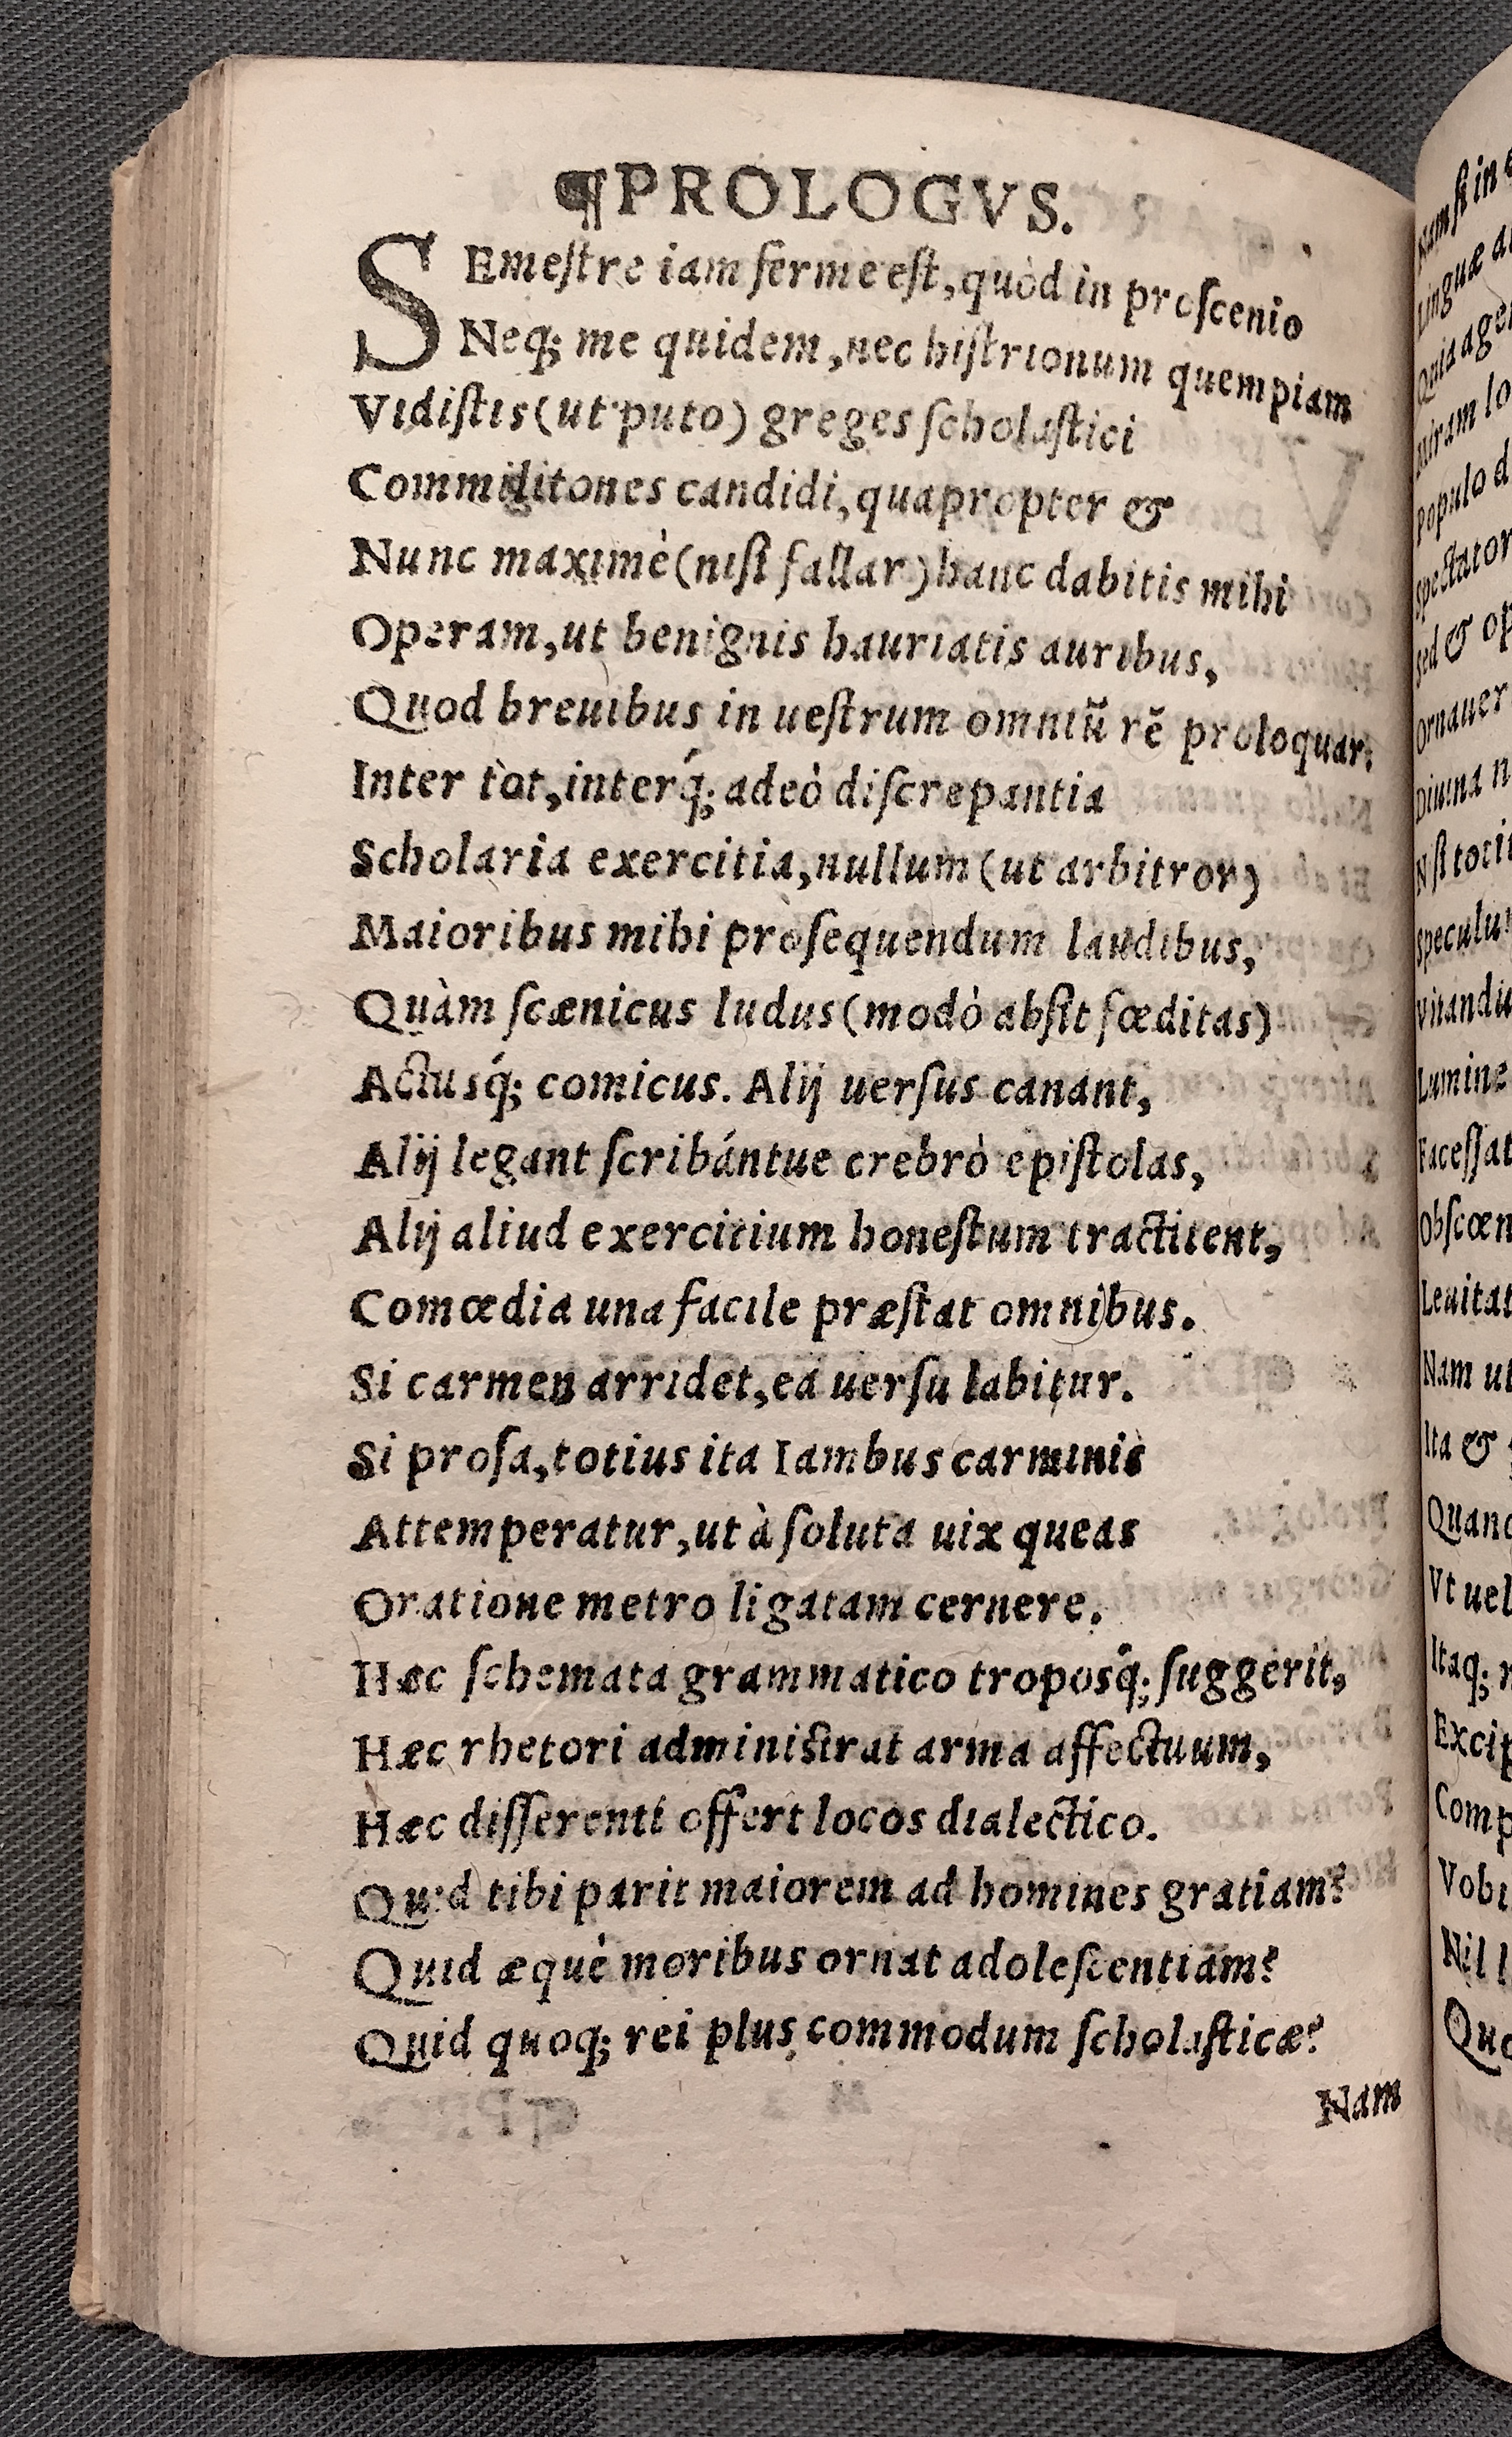 ¶PROLOGVS.
SEmeſtre iam ferme eſt, quòd in proſcenio
Neq; me quidem, nec hiſtrionum quempiam
Vidiſtis (ut puto) greges ſcholaſtici
Commilitones candidi, quapropter &
Nunc maximè (niſi fallar) hanc dabitis mihi
Operam, ut benignis hauriatis auribus,
Quod breuibus in ueſtrum omniũ rē proloquar:
Inter tot, interq́; adeò diſcrepantia
Scholaria exercitia, nullum (ut arbitror)
Maioribus mihi proſequendum laudibus,
Quàm ſcænicus ludus (modò abſit fœditas)
Actusq́; comicus. Alij uerſus canant,
Alij legant ſcribántue crebrò epiſtolas,
Alij aliud exercitium honeſtum tractitent,
Comœdia una facile præſtat omnibus.
Si carmen arridet, ea uerſu labitur.
Si proſa, totius ita Iambus carminis
Attemperatur, ut à ſoluta uix queas
Oratione metro ligatam cernere.
Hæc ſchemata grammatico troposq́; ſuggerit,
Hæc rhetori adminiſtrat arma affectuum,
Hæc diſſerenti offert locos dialectico.
Quid tibi parit maiorem ad homines gratiam?
Quid æquè moribus ornat adoleſcentiam?
Quid quoq; rei plus commodum ſcholaſticæ?
Nam
Nam ſi in
Linguæ
Populo
Spectator
Sed & op
Ornauer
Diuina n
Lumine
Faceſſat
Leuitat
Nam ut
Ita &
Quand
Vt uel
Itaq;
Excip
Comp
Vobi
Nil